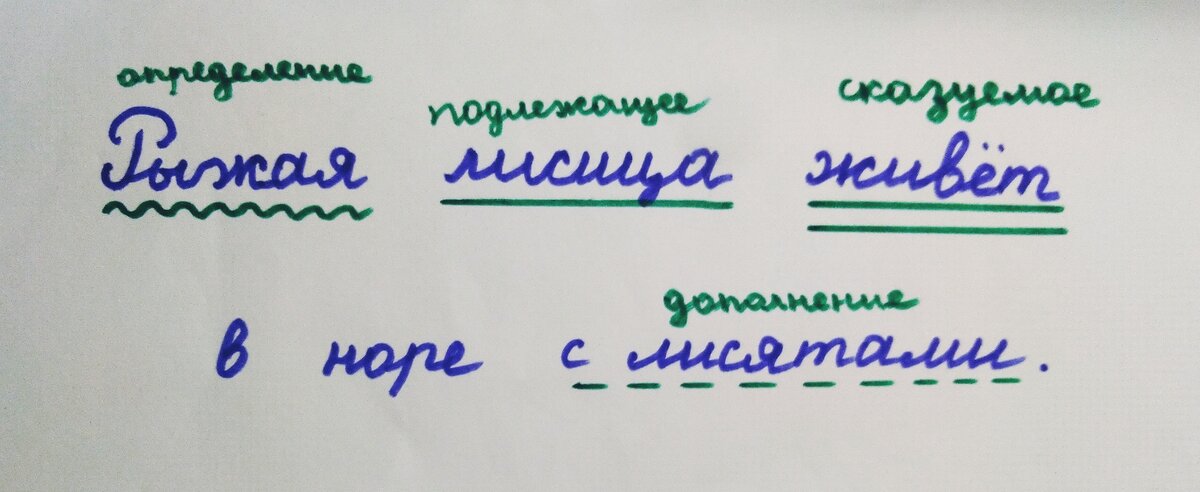 определение подлежащее сказуемое
Рыжая лисица живёт
дополнение
в норе с лисятами.